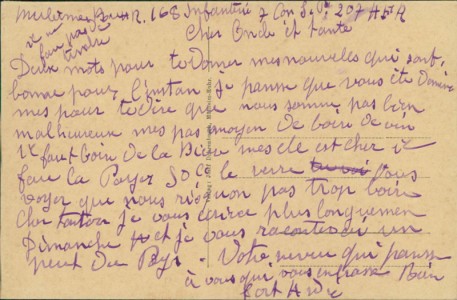 R. 168 Infantrie 7 Con S.P. 207 A
il ne faut pas tendre
Cher Oncle et tante
Deux mots pour te donner mes nouvelles qui sont
bonne pour l'instan je panse que vous ete de
mes pour te dire que nous somme pas bien
malheureux mes pas moyen de boir de vin
il faut boir de la Biere mes cle et cher il
faut la Payer 50 c le verre vous
voyer que nous risquon pas trop boir
cher tonton je vous ecrire plus longuemen
Dimanche et je vous raconterai un
peut du Pays - Votre neveu qui panse
à vous qui vous enbrasse Bien
fort André